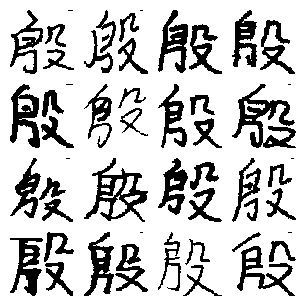 殷殷殷殷
殷殷殷殷
殷殷殷殷
殷殷殷殷